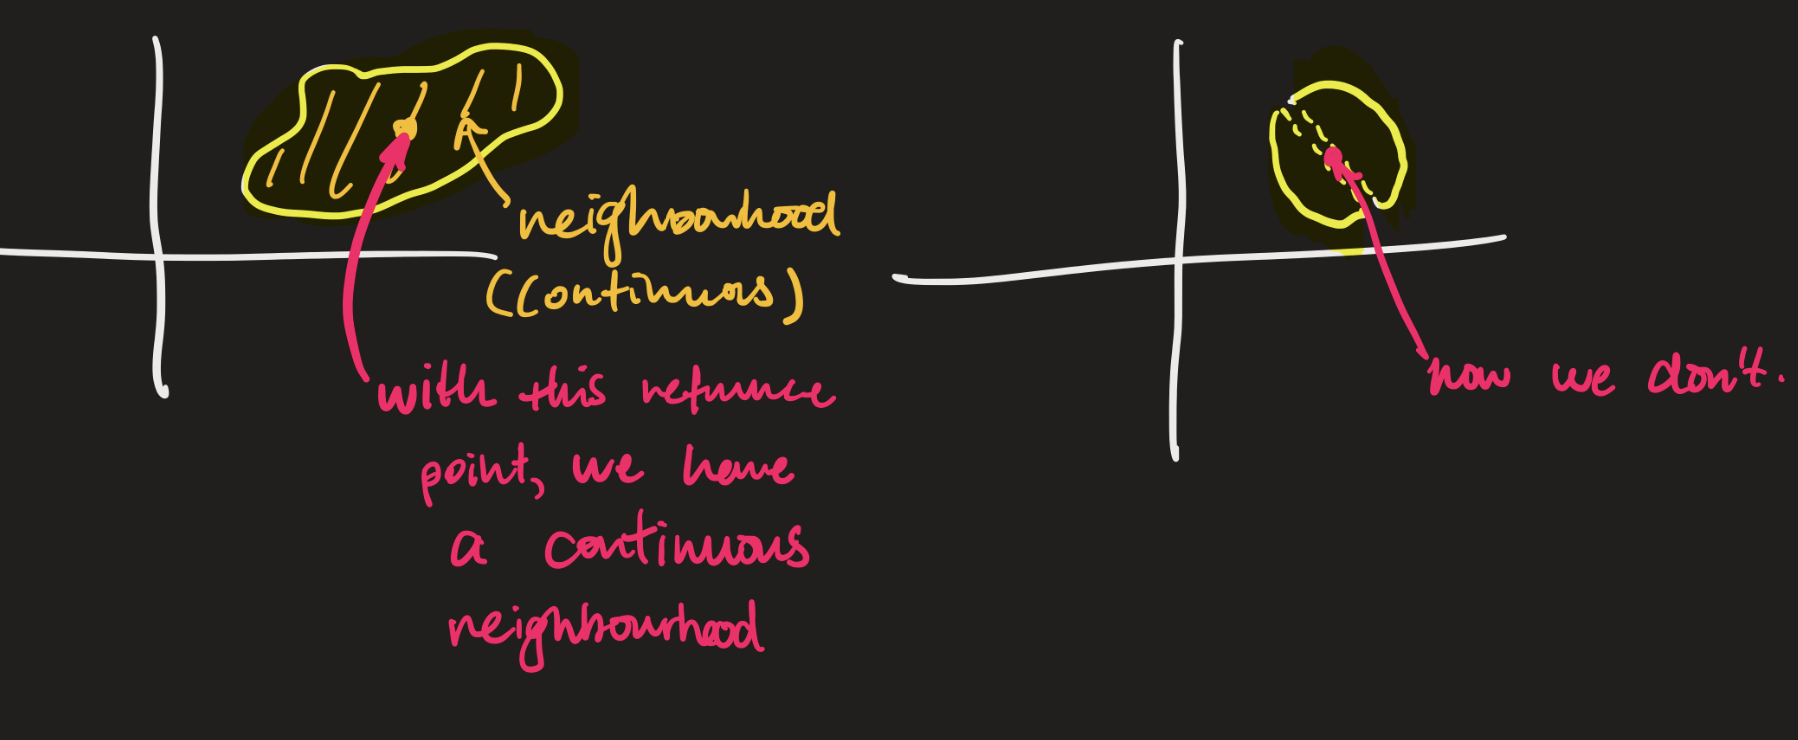 neighbourhood
(continuous)
with this reference
point, we have
a continuous
neighbourhood
now we don't.